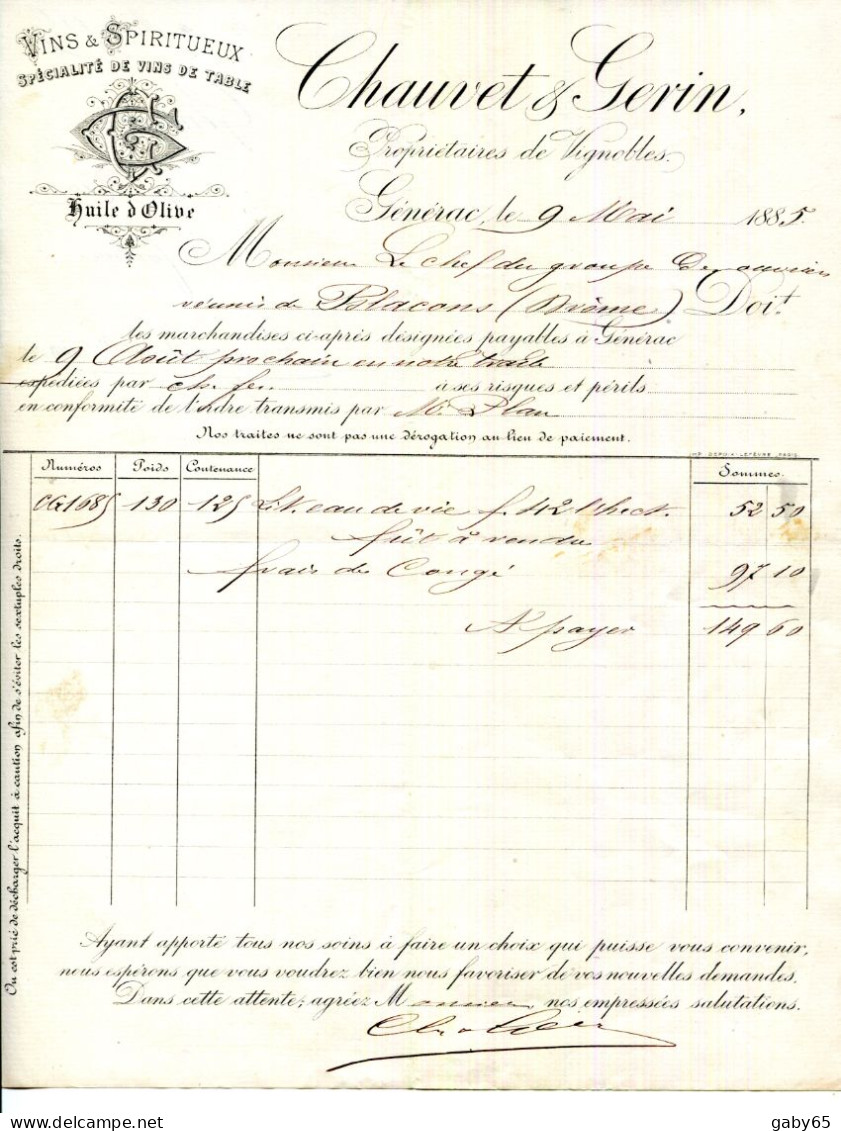 VINS & SPIRITUEUX
SPÉCIALITÉ DE VINS DE TABLE
Huile d'Olive
Chauvet & Gerin,
Propriétaires de Vignobles.
Générac, le 9 Mai 1885.
Monsieur Le chef du groupe De ouvriers
réunis de Blacons (Drôme) Doit
les marchandises ci-après désignées payables à Générac
le 9 Août prochain en notre traite
expédiées par ch. fer. à ses risques et périls
en conformité de l'ordre transmis par Mr. Plan
Nos traites ne sont pas une dérogation au lieu de paiement.
IMP. LEFÈVRE, PARIS
Numéros Poids Contenance Sommes
CG1685 130 125 Lit. eau de vie f. 42 l'hect. 52 50
fût à rendre
frais de Congé 97 10
A payer 149 60
On est prié de décharger l'acquit à caution afin de s'éviter les sextuples droits.
Ayant apporté tous nos soins à faire un choix qui puisse vous convenir,
nous espérons que vous voudrez bien nous favoriser de vos nouvelles demandes.
Dans cette attente, agréez Monsieur nos empressées salutations.
gaby65